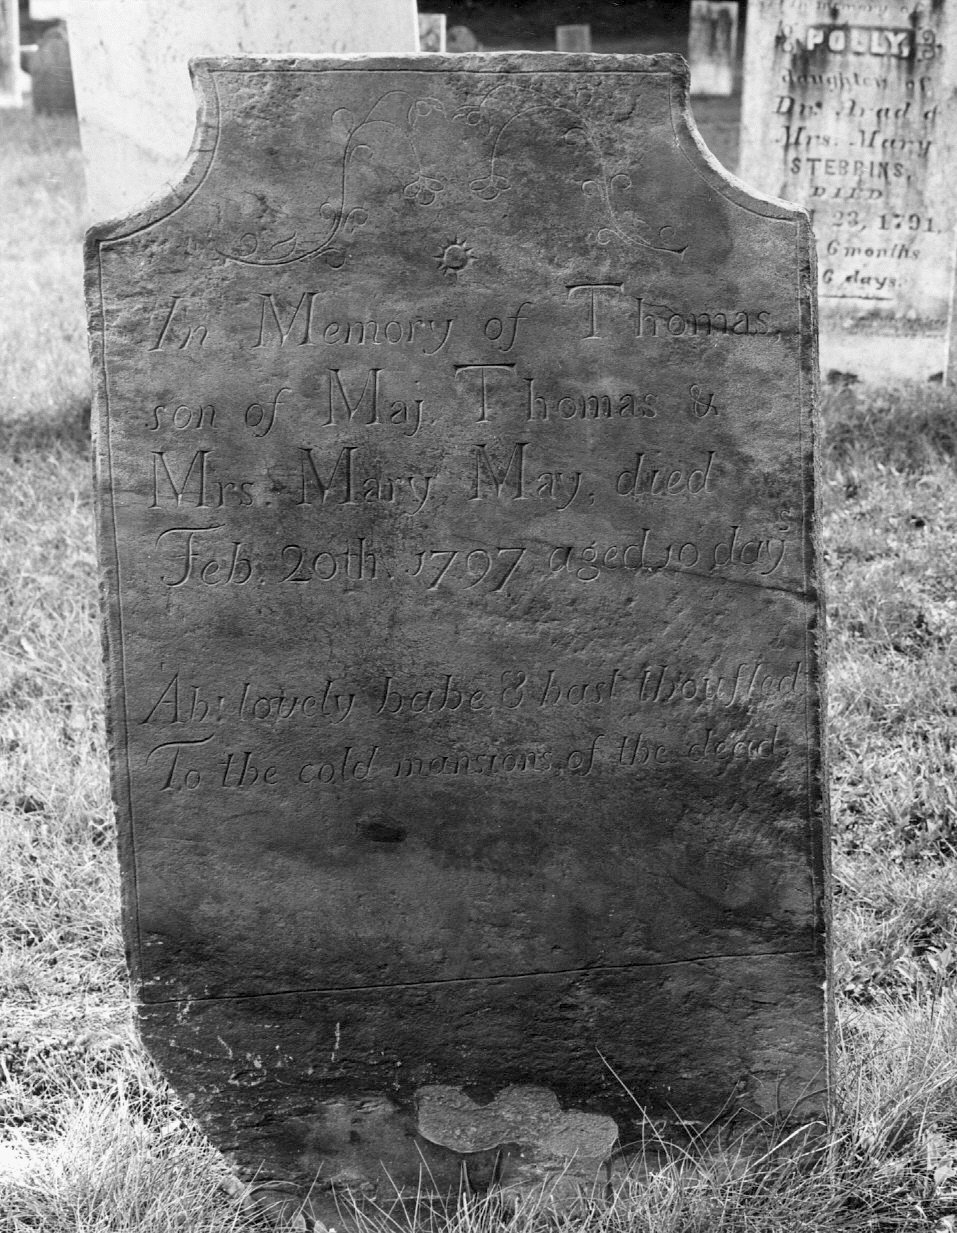 In Memory of Thomas,
son of Maj. Thomas &
Mrs. Mary May, died
Feb. 20th. 1797 aged 10 day
s
Ah! lovely babe & hast thou fled
To the cold mansions of the dead
In memory of
POLLY
daughter of
Dr. Arad &
Mrs. Mary
STEBBINS
DIED
23, 1791.
6 months
days